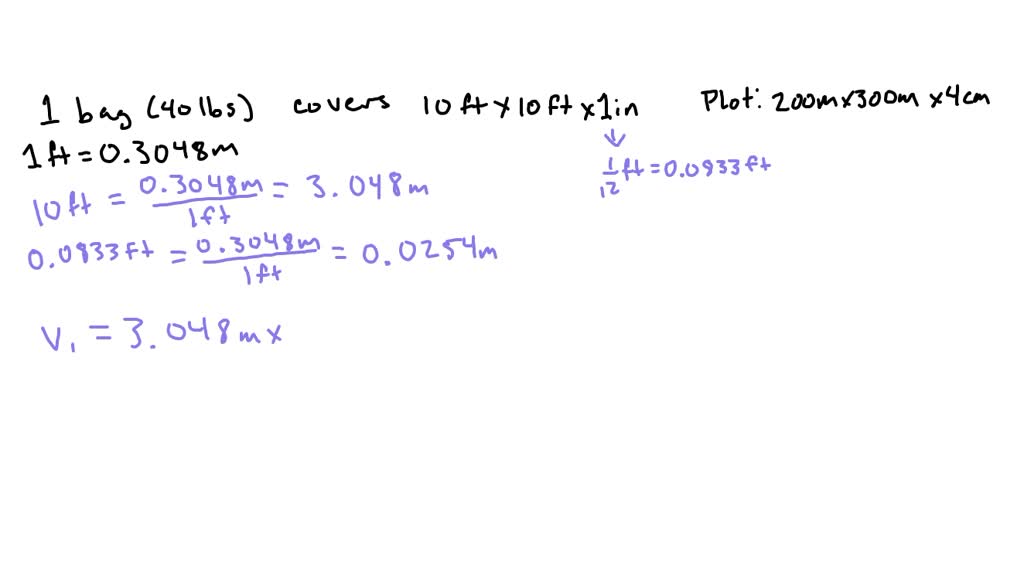 1 bag (40 lbs) covers 10ft x 10ft x 1in
Plot: 200m x 300m x 4cm
↓
1/12 ft = 0.0833 ft
1 ft = 0.3048m
10 ft = 0.3048m/1ft = 3.048m
0.0833 ft = 0.3048m/1ft = 0.0254m
V₁ = 3.048m x